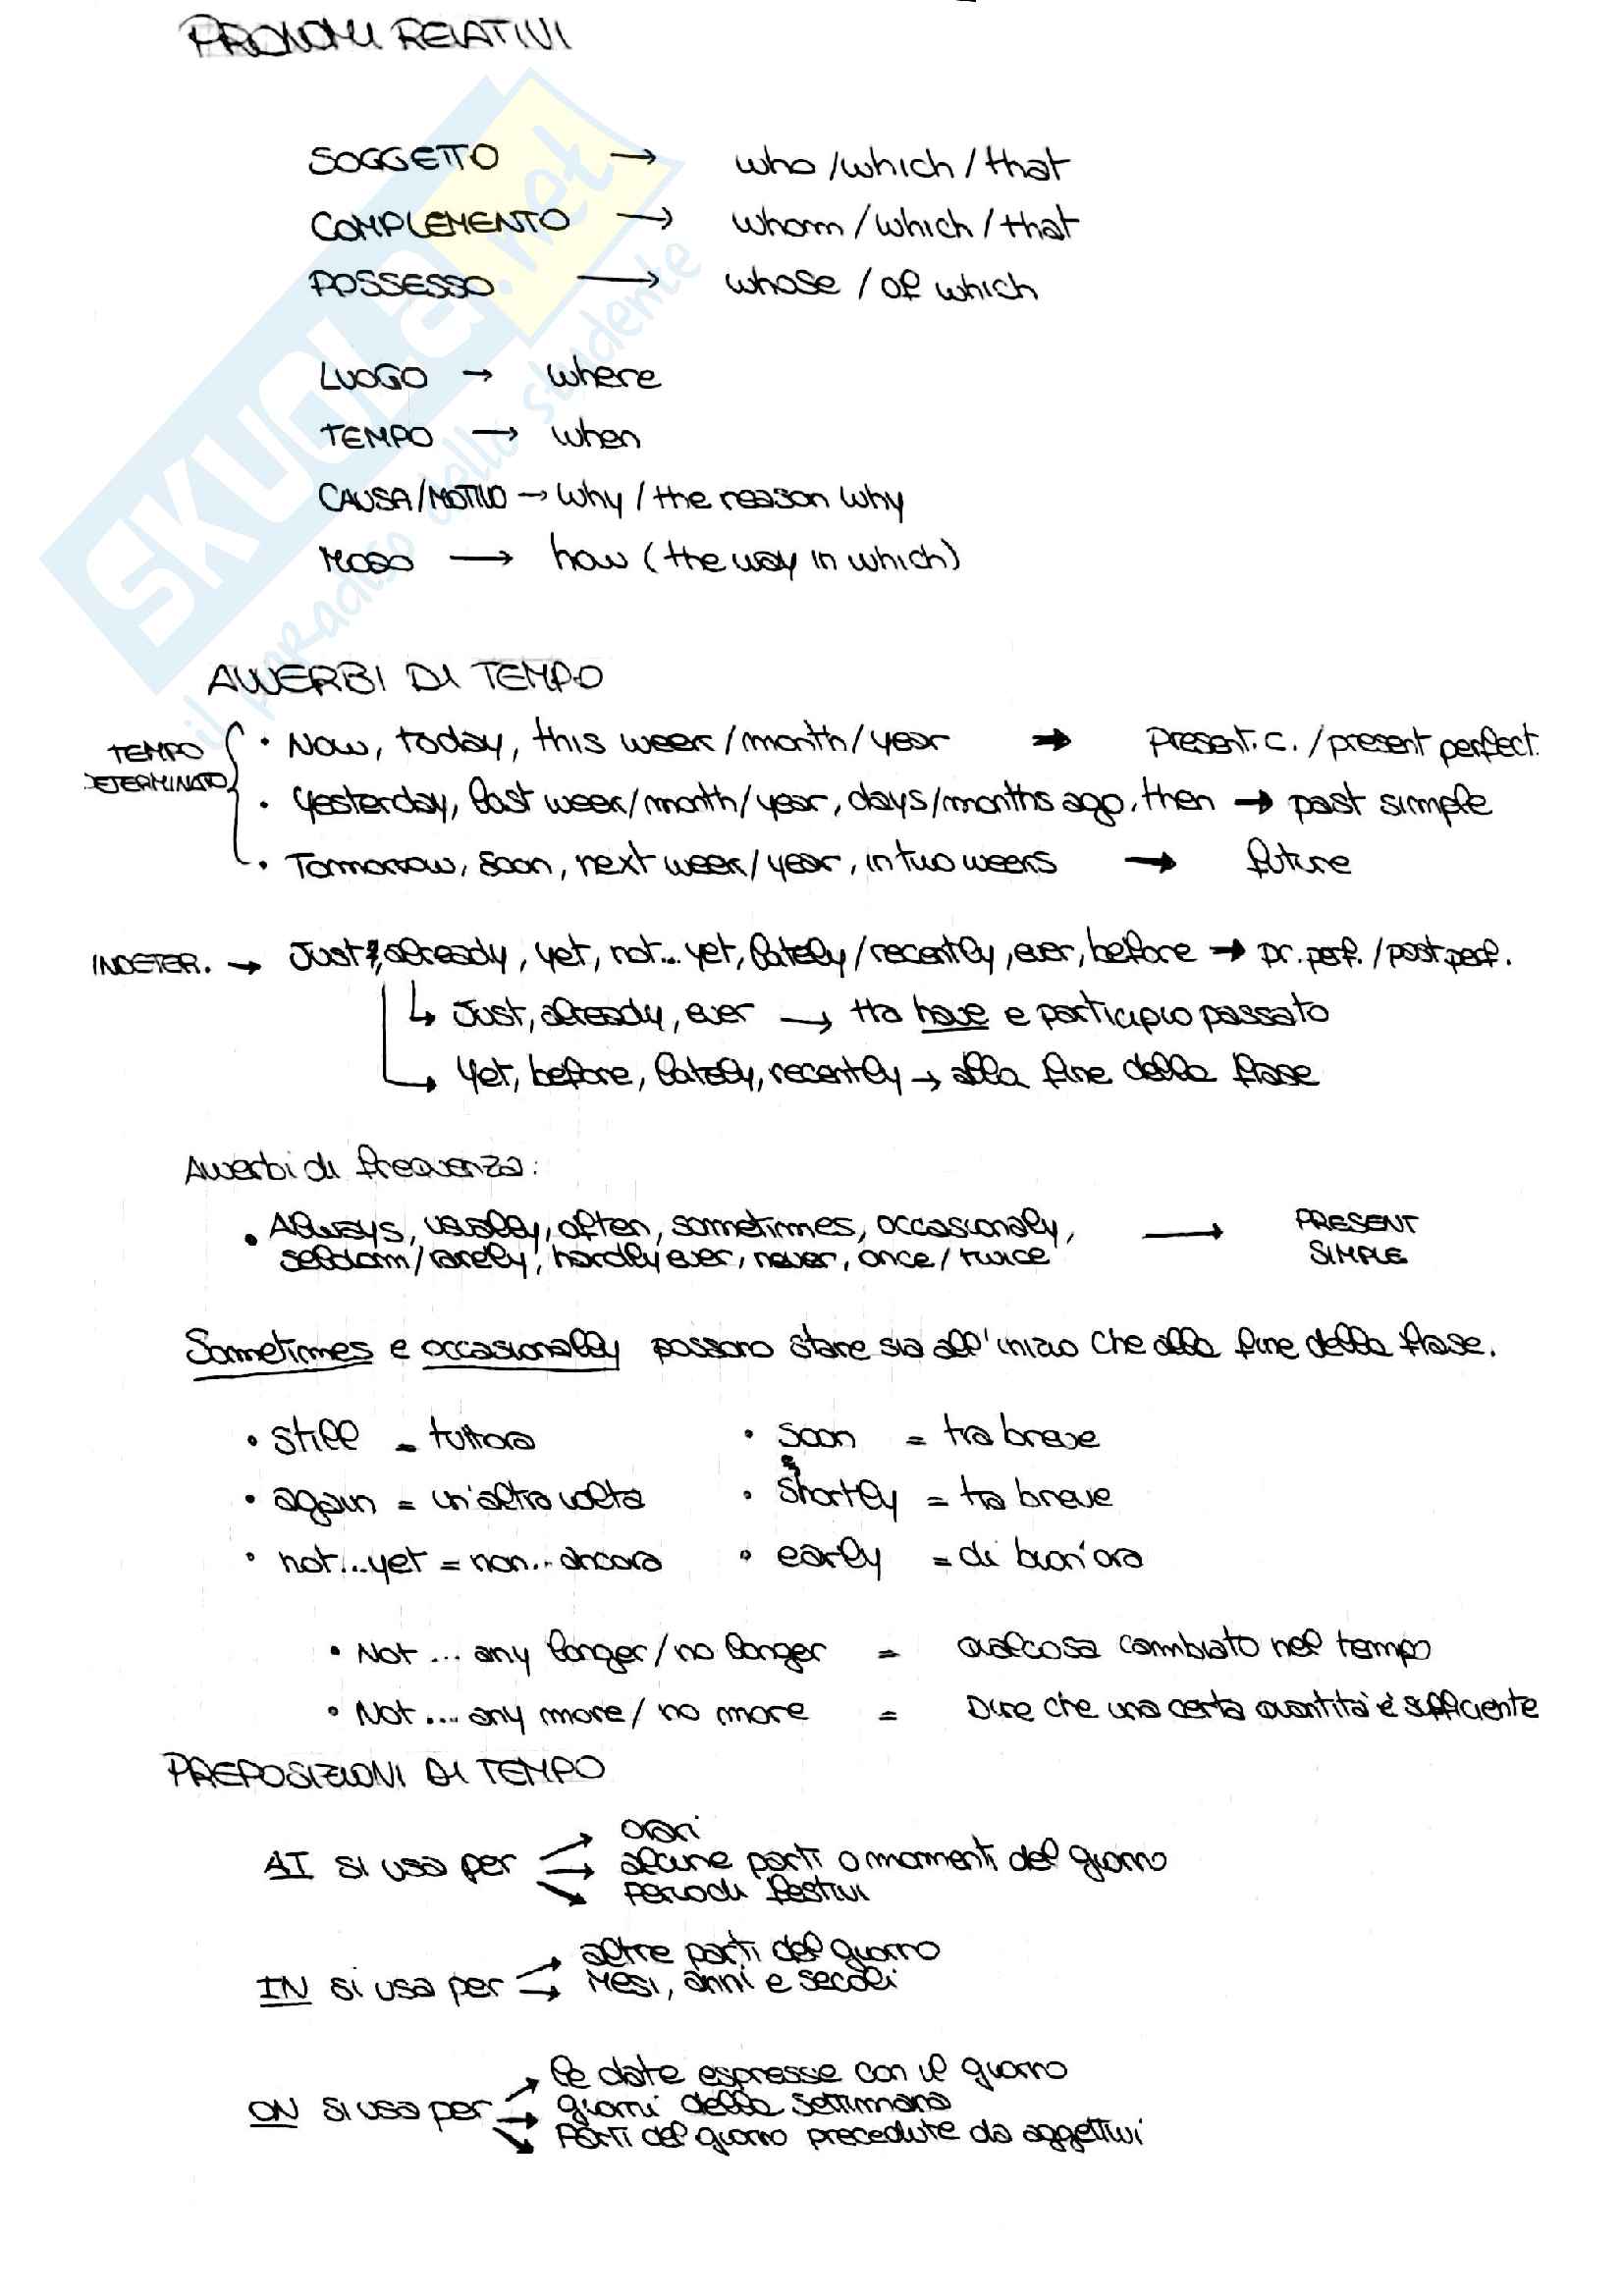 PRONOMI RELATIVI
SOGGETTO → who / which / that
COMPLEMENTO → whom / which / that
POSSESSO → whose / of which
LUOGO → where
TEMPO → when
CAUSA/MOTIVO → why / the reason why
MODO → how (the way in which)
SKUOLA.net
il paradiso dello studente
AVVERBI DI TEMPO
TEMPO DETERMINATO
• Now, today, this week/month/year → Present. c. / present perfect.
• Yesterday, last week/month/year, days/months ago, then → past simple
• Tomorrow, soon, next week/year, in two weeks → future
INDETER. → Just, already, yet, not... yet, lately/recently, ever, before → pr. perf. / past perf.
↳ Just, already, ever → tra have e participio passato
↳ Yet, before, lately, recently → alla fine della frase
Avverbi di frequenza:
• Always, usually, often, sometimes, occasionaly, → PRESENT
seldom/rarely, hardly ever, never, once/twice SIMPLE
Sometimes e occasionally possono stare sia all'inizio che alla fine della frase.
• still = tuttora • soon = tra breve
• again = un'altra volta • shortly = tra breve
• not...yet = non... ancora • early = di buon'ora
• Not ... any longer / no longer = qualcosa cambiato nel tempo
• Not ... any more / no more = Dire che una certa quantità è sufficiente
PREPOSIZIONI DI TEMPO
orari
AT si usa per → alcune parti o momenti del giorno
periodi festivi
altre parti del giorno
IN si usa per → Mesi, anni e secoli
le date espresse con il giorno
ON si usa per → giorni della settimana
Parti del giorno precedute da aggettivi